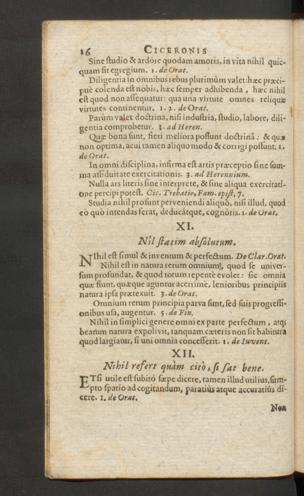 16 CICERONIS
Sine studio & ardore quodam amoris, in vita nihil quic-
quam fit egregium. 1. de Orat.
Diligentia in omnibus rebus plurimùm valet: hæc præci-
puè colenda est nobis, hæc semper adhibenda, hæc nihil
est quod non assequatur: qua una virtute omnes reliquæ
virtutes continentur. 1. 2. de Orat.
Parùm valet doctrina, nisi industria, studio, labore, dili-
gentia comprobetur. 3. ad Heren.
Quæ bona sunt, fieri meliora possunt doctrina: & quæ
non optima, acui tamen aliquo modo & corrigi possunt. 1.
de Orat.
In omni disciplina, infirma est artis præceptio sine sum-
ma assiduitate exercitationis. 3. ad Herennium.
Nulla ars literis sine interprete, & sine aliqua exercitati-
one percipi potest. Cic. Trebatio, Fam. epist. 7.
Studia nihil prosunt perveniendi aliquò, nisi illud, quod
eò quò intendas ferat, deducátque, cognóris. 1. de Orat.
XI.
Nil statim absolutum.
NIhil est simul & inventum & perfectum. De Clar. Orat.
Nihil est in natura rerum omnium, quod se univer-
sum profundat, & quod totum repentè evolet: sic omnia
quæ fiunt, quæque aguntur acerrimè, lenioribus principiis
natura ipsa prætexuit. 3. de Orat.
Omnium rerum principia parva sunt, sed suis progressi-
onibus usa, augentur. 5. de Fin.
Nihil in simplici genere omni ex parte perfectum, atq;
beatum natura expolivit, tanquam cæteris non sit habitura
quod largiatur, si uni omnia concesserit. 1. de Invent.
XII.
Nihil refert quàm citò, si sat bene.
ETsi utile est subitò sæpe dicere, tamen illud utilius, sum-
pto spatio ad cogitandum, paratiùs atque accuratiùs di-
cere. 1. de Orat.
Non